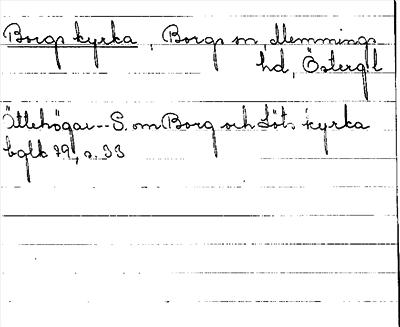 Borgs kyrka, Borgs sn, Memmings
hd, Östergl
Ättehögar--S. om Borg och Löts kyrka
bglb 29, s. 33